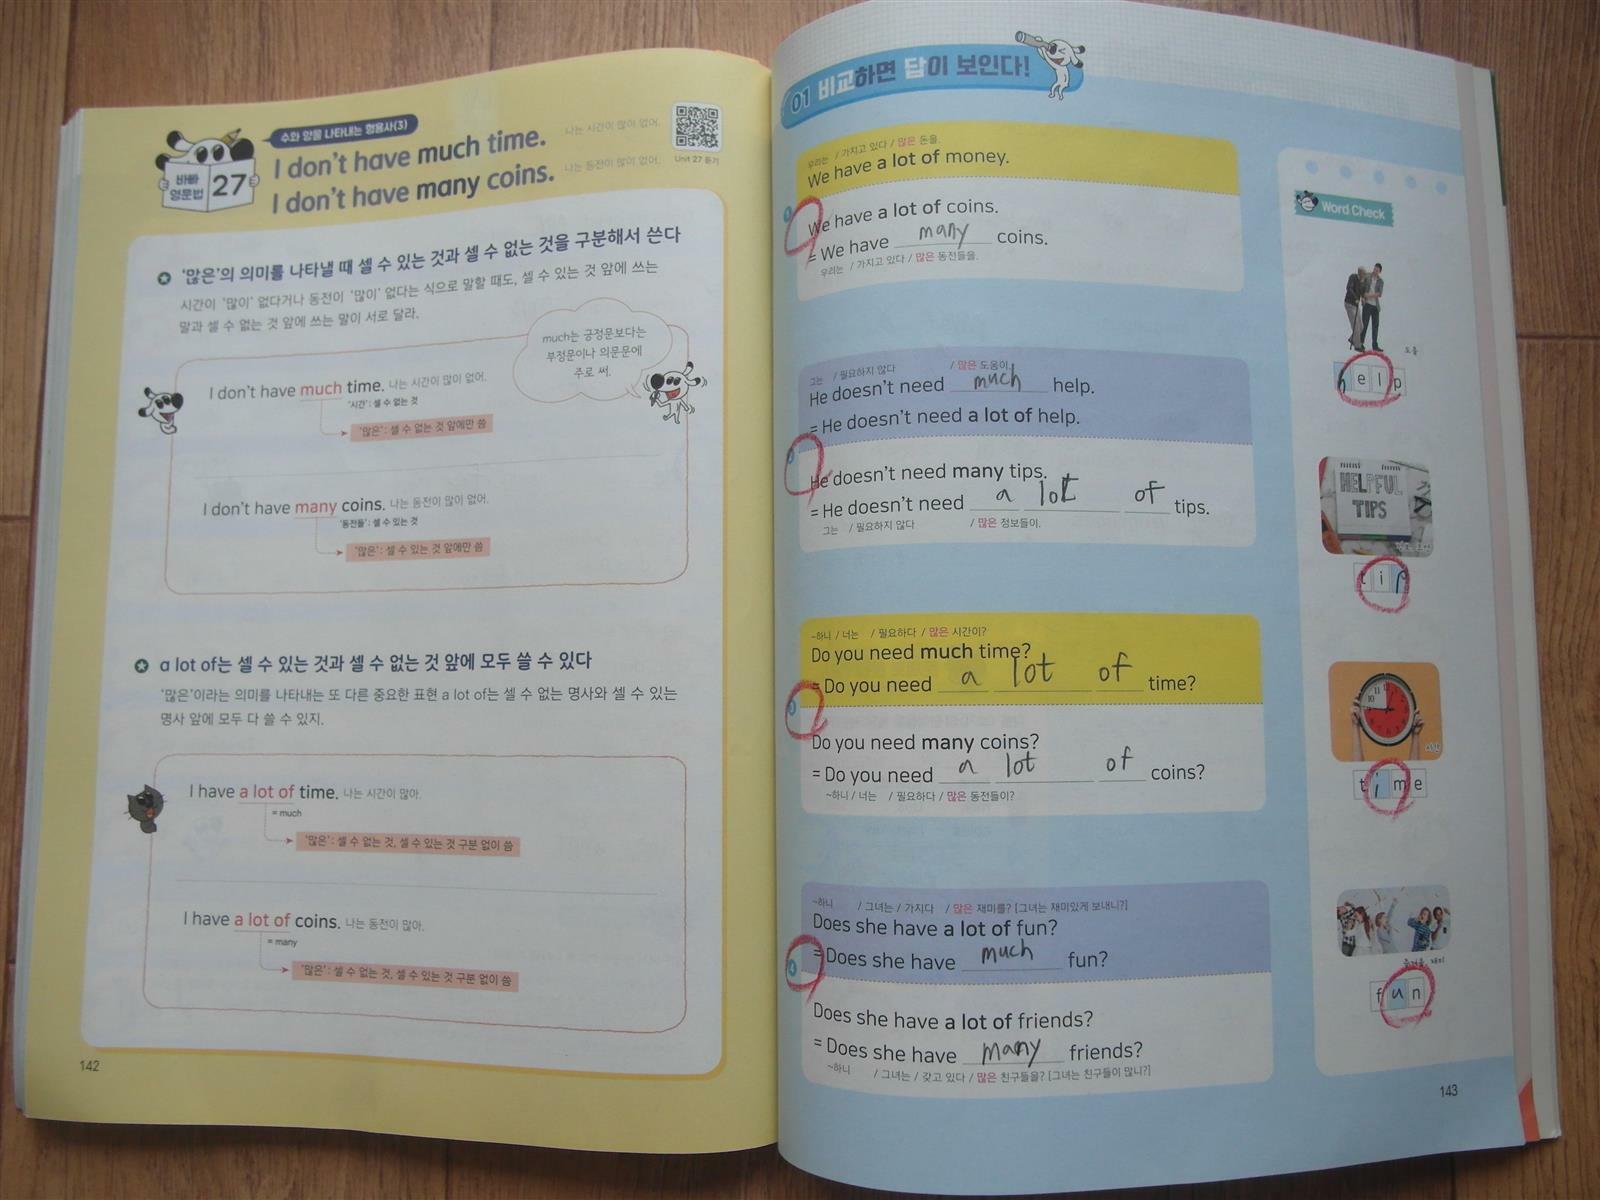 수와 양을 나타내는 형용사(3)
바빠
영문법 27
I don't have much time. 나는 시간이 많이 없어.
I don't have many coins. 나는 동전이 많이 없어.
Unit 27 듣기
'많은'의 의미를 나타낼 때 셀 수 있는 것과 셀 수 없는 것을 구분해서 쓴다
시간이 '많이' 없다거나 동전이 '많이' 없다는 식으로 말할 때도, 셀 수 있는 것 앞에 쓰는
말과 셀 수 없는 것 앞에 쓰는 말이 서로 달라.
much는 긍정문보다는
부정문이나 의문문에
주로 써.
I don't have much time. 나는 시간이 많이 없어.
'시간': 셀 수 없는 것
'많은': 셀 수 없는 것 앞에만 씀
I don't have many coins. 나는 동전이 많이 없어.
'동전들': 셀 수 있는 것
'많은': 셀 수 있는 것 앞에만 씀
a lot of는 셀 수 있는 것과 셀 수 없는 것 앞에 모두 쓸 수 있다
'많은'이라는 의미를 나타내는 또 다른 중요한 표현 a lot of는 셀 수 없는 명사와 셀 수 있는
명사 앞에 모두 다 쓸 수 있지.
I have a lot of time. 나는 시간이 많아.
= much
'많은': 셀 수 없는 것, 셀 수 있는 것 구분 없이 씀
I have a lot of coins. 나는 동전이 많아.
= many
'많은': 셀 수 없는 것, 셀 수 있는 것 구분 없이 씀
142
01 비교하면 답이 보인다!
우리는 / 가지고 있다 / 많은 돈을.
We have a lot of money.
1
We have a lot of coins.
= We have many coins.
우리는 / 가지고 있다 / 많은 동전들을.
그는 / 필요하지 않다 / 많은 도움이.
He doesn't need much help.
= He doesn't need a lot of help.
2
He doesn't need many tips.
= He doesn't need a lot of tips.
그는 / 필요하지 않다 / 많은 정보들이.
~하니 / 너는 / 필요하다 / 많은 시간이?
Do you need much time?
= Do you need a lot of time?
3
Do you need many coins?
= Do you need a lot of coins?
~하니 / 너는 / 필요하다 / 많은 동전들이?
~하니 / 그녀는 / 가지다 / 많은 재미를? [그녀는 재미있게 보내니?]
Does she have a lot of fun?
= Does she have much fun?
4
Does she have a lot of friends?
= Does she have many friends?
~하니 / 그녀는 / 갖고 있다 / 많은 친구들을? [그녀는 친구들이 많니?]
Word Check
도움
help
HELPFUL
TIPS
tip
시간
time
즐거움, 재미
fun
143